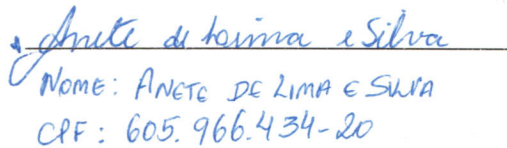 Anete de Lima e Silva
NOME: ANETE DE LIMA E SILVA
CPF: 605.966.434-20